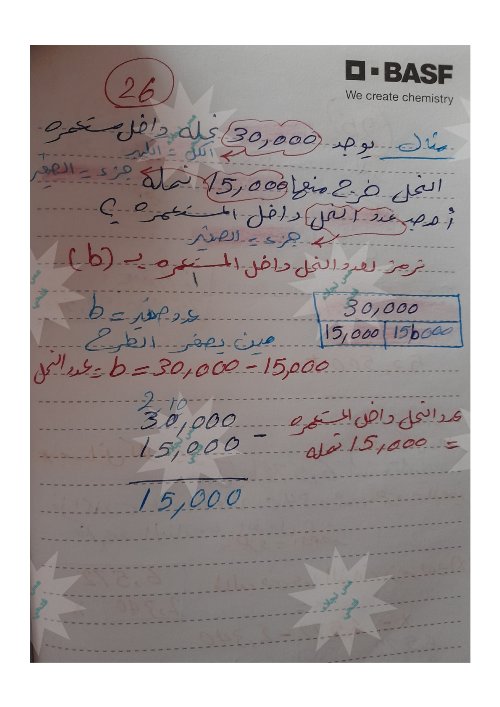 26
BASF
We create chemistry
مثال يوجد 30,000 نحله داخل مستعمره
الكل = الكبير
جزء = الصغير
النحل خرج منها 15,000 نحلة
أوجد عدد النحل داخل المستعمره ؟
جزء = الصغير
نرمز لعدد النحل داخل المستعمره بـ (b)
30,000
15,000 15000
b = عدد صغير
الطرح
عدد النحل = b = 30,000 - 15,000
2 10
30,000
15,000 -
15,000
عدد النحل داخل المستعمره
= 15,000 نحله